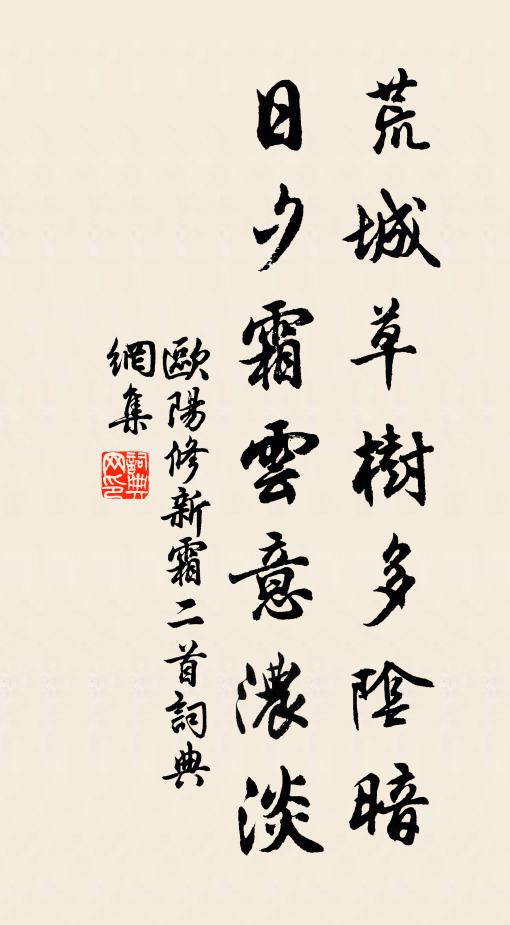 荒城草樹多陰暗
日夕霜雲意濃淡
歐陽修新霜二首詞典
網集
詞典
网印